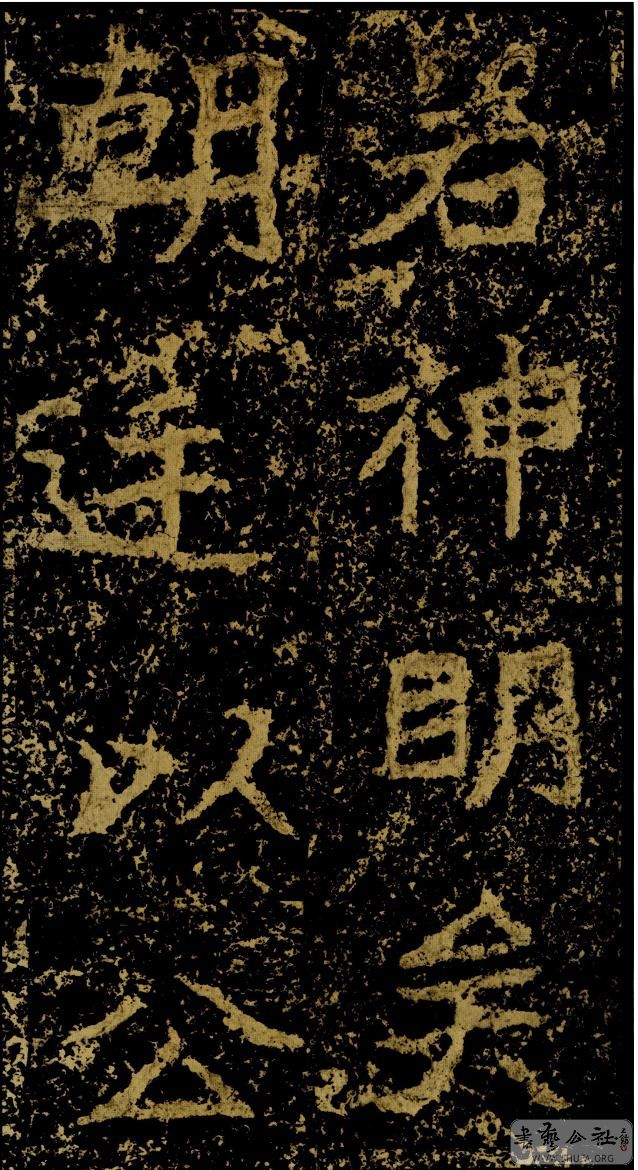 若神明矣
朝廷以公
書藝公社
WWW.SHUFA.ORG